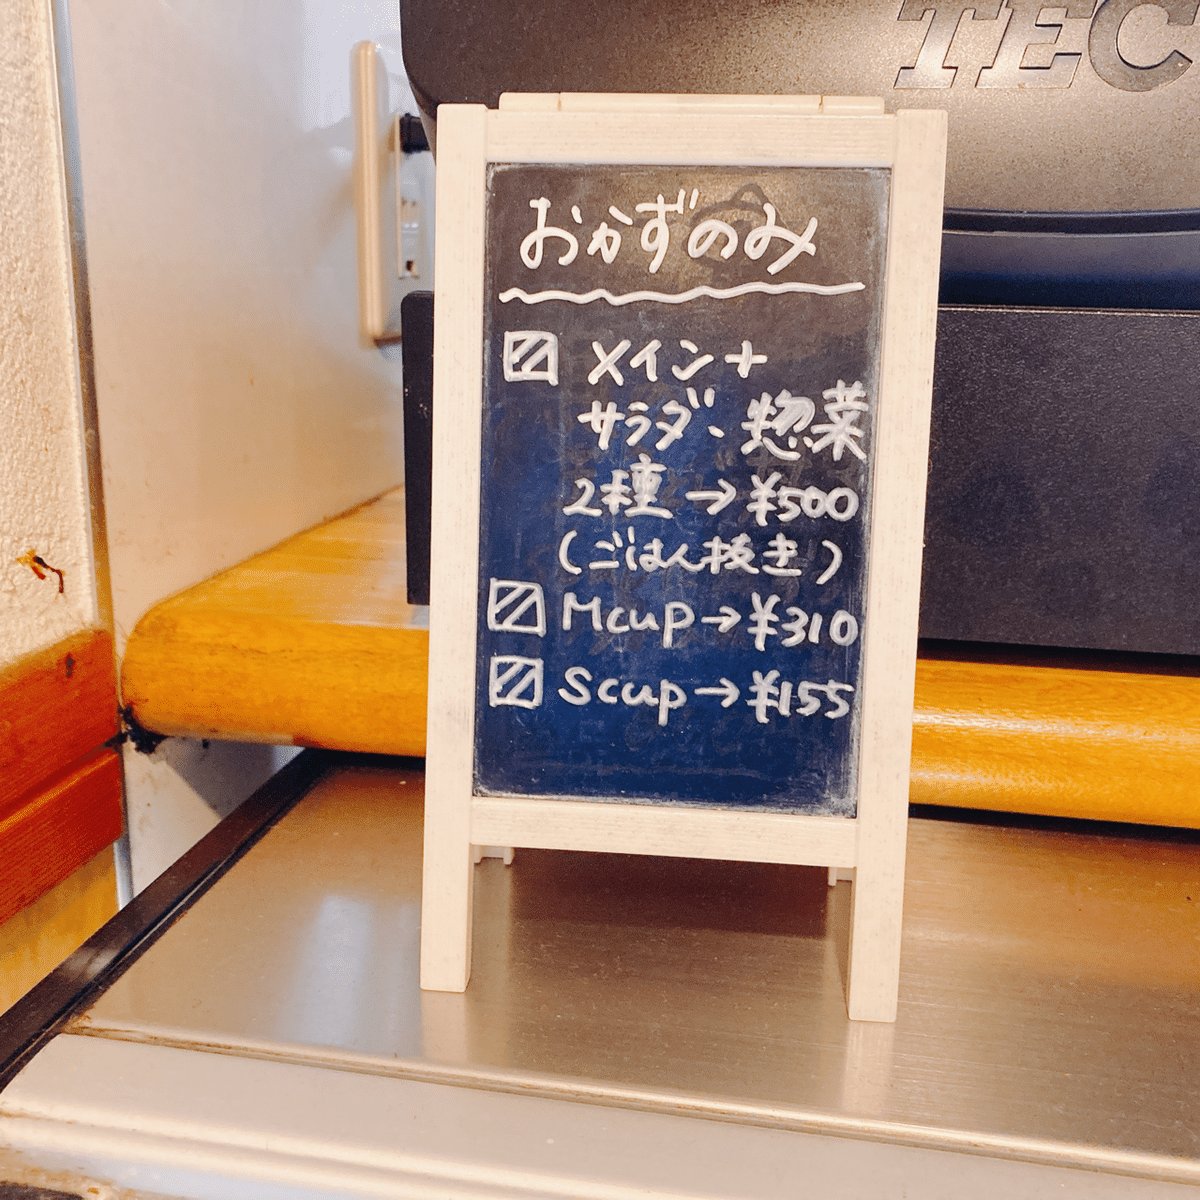 TEC
おかずのみ
メイン+
サラダ、惣菜
2種→¥500
(ごはん抜き)
Mcup→¥310
Scup→¥155